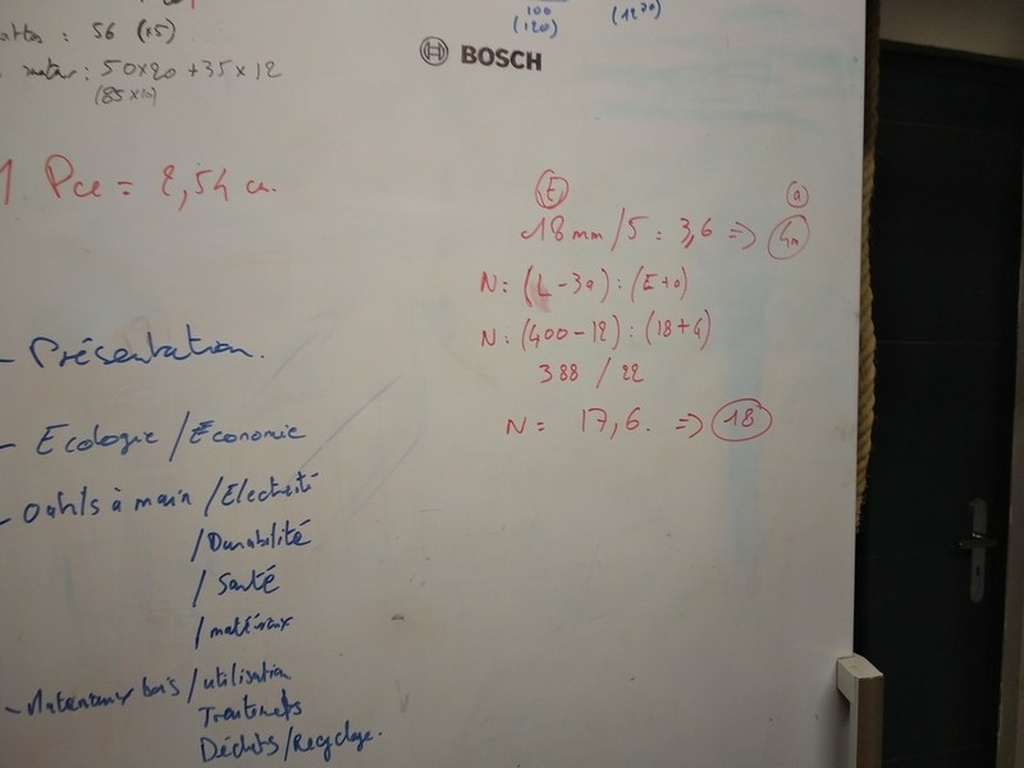 100
(120)
: 56 (x5)
: 50x20 + 35x12
(85x10)
BOSCH
1 Pce = 2,54 cm.
E
a
18 mm / 5 = 3,6 =>
N = (L - 3a) : (E + a)
N : (400 - 12) : (18 + 4)
388 / 22
N = 17,6. => 18
- Présentation.
- Ecologie / Economie
- Outils à main / Electricité
/ Durabilité
/ Santé
/ matériaux
- bois / utilisation
Traitements
Déchets / Recyclage.